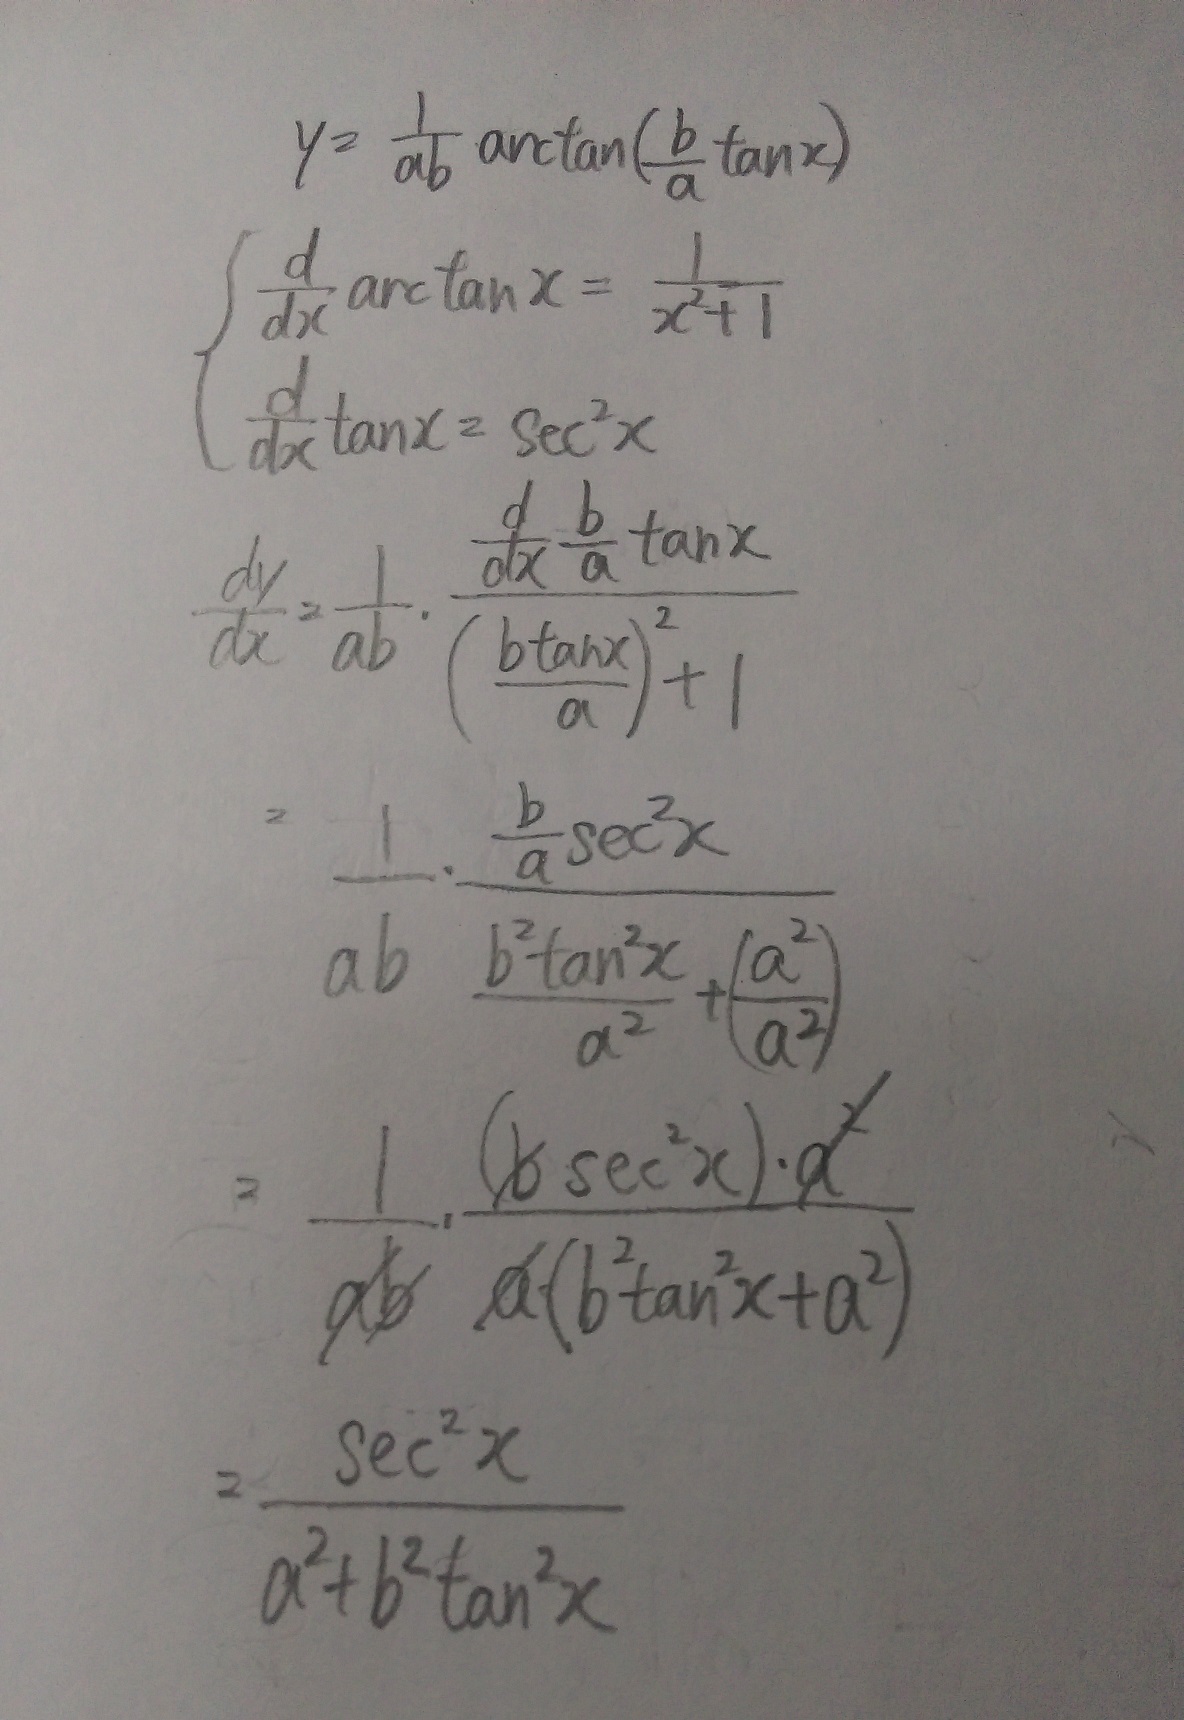 y = 1/ab arctan(b/a tanx)
d/dx arctanx = 1/(x²+1)
d/dx tanx = sec²x
dy/dx = 1/ab · (d/dx b/a tanx)/((btanx/a)²+1)
= 1/ab · (b/a sec²x)/(b²tan²x/a² + (a²/a²))
= 1/ab · ((b sec²x)·a²)/(a(b²tan²x+a²))
= sec²x/(a²+b²tan²x)